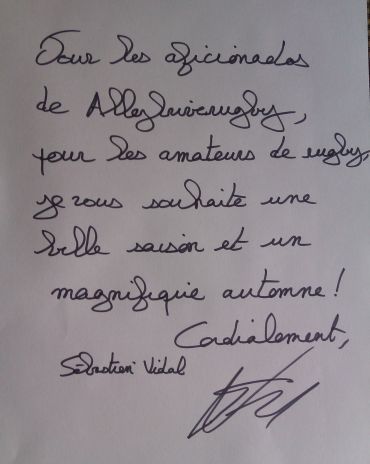 Pour les aficionados
de Allezbriverugby,
pour les amateurs de rugby,
je vous souhaite une
belle saison et un
magnifique automne !
Cordialement,
Sébastien Vidal